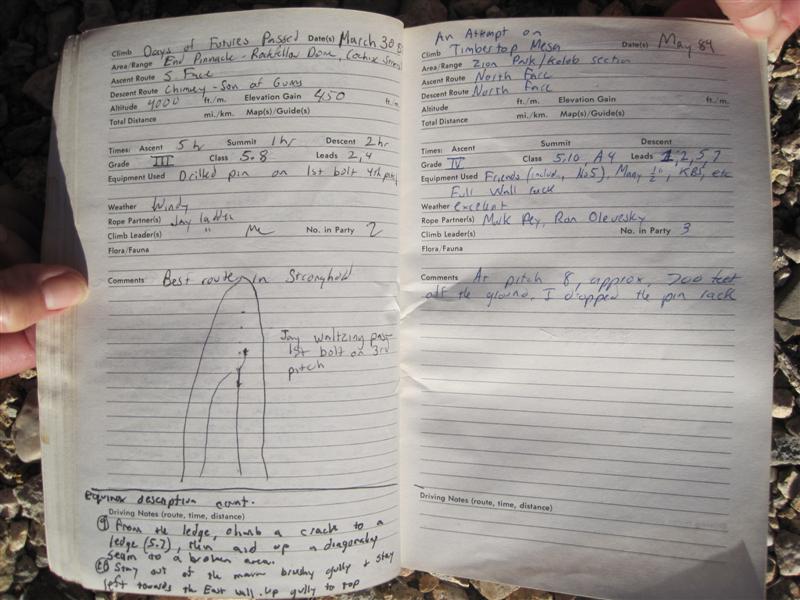 Climb Days of Futures Passed Date(s) March 30
Area/Range End Pinnacle - Rockfellow Dome, Cochise
Ascent Route S Face
Descent Route Chimney - Son of Guns
Altitude 4000 ft./m. Elevation Gain 450 ft./m.
Total Distance mi./km. Map(s)/Guide(s)
Times: Ascent 5 hr Summit 1 hr Descent 2 hr
Grade III Class 5.8 Leads 2, 4
Equipment Used Drilled pin on 1st bolt 4th pitch
Weather Windy
Rope Partner(s) Jay
Climb Leader(s) " Me No. in Party 2
Flora/Fauna
Comments Best route in Stronghold
Jay waltzing past
1st bolt on 3rd
pitch
Equinox description cont.
Driving Notes (route, time, distance)
From the ledge, climb a crack to a
ledge (5.7), then aid up a diagonaling
seam to a broken area.
Stay out of the main brushy gully + stay
left towards the East wall. Up gully to top
An Attempt on
Climb Timbertop Mesa Date(s) May 84
Area/Range Zion Park/Kolob section
Ascent Route North Face
Descent Route North Face
Altitude ft./m. Elevation Gain ft./m.
Total Distance mi./km. Map(s)/Guide(s)
Times: Ascent Summit Descent
Grade IV Class 5.10, A4 Leads 1, 2, 5, 7
Equipment Used Friends (includ. No5), Many ½", KBs, etc
Full Wall rack
Weather excellent
Rope Partner(s) Ron Olevsky
Climb Leader(s) No. in Party 3
Flora/Fauna
Comments At pitch 8, approx. 700 feet
off the ground, I dropped the pin rack
Driving Notes (route, time, distance)